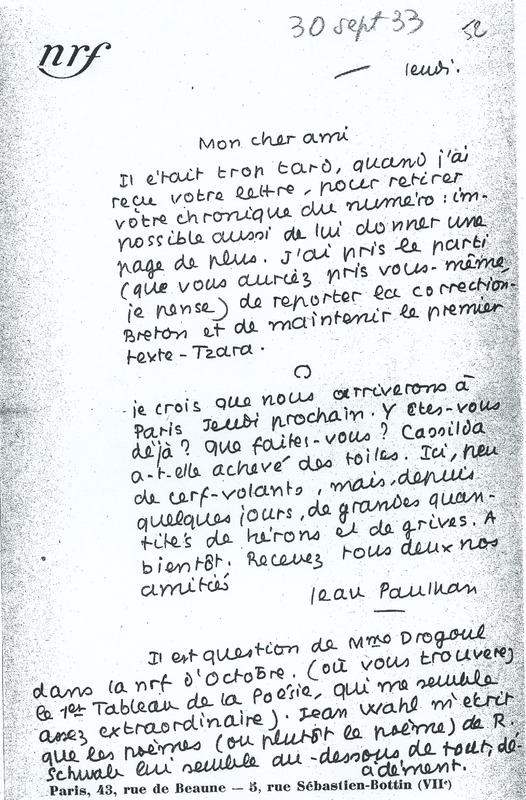 30 sept 33
52
nrf
— Jeudi.
Mon cher ami
Il était trop tard, quand j'ai
reçu votre lettre, pour retirer
votre chronique du numéro : im-
possible aussi de lui donner une
page de plus. J'ai pris le parti
(que vous auriez pris vous-même,
je pense) de reporter la correction-
Breton et de maintenir le premier
texte-Tzara.
je crois que nous arriverons à
Paris Jeudi prochain. Y êtes-vous
déjà ? Que faites-vous ? Cassilda
a-t-elle achevé des toiles. Ici, peu
de cerf-volants, mais, depuis
quelques jours, de grandes quan-
tités de hérons et de grives. A
bientôt. Recevez tous deux nos
amitiés
Jean Paulhan
Il est question de Mme Drogoul
dans la nrf d'Octobre. (où vous trouverez
le 1er Tableau de la Poésie, qui me semble
assez extraordinaire). Jean Wahl m'écrit
que les poèmes (ou plutôt le poème) de R.
Schwab lui semble au-dessous de tout, dé-
cidément.
Paris, 43, rue de Beaune — 5, rue Sébastien-Bottin (VIIe)